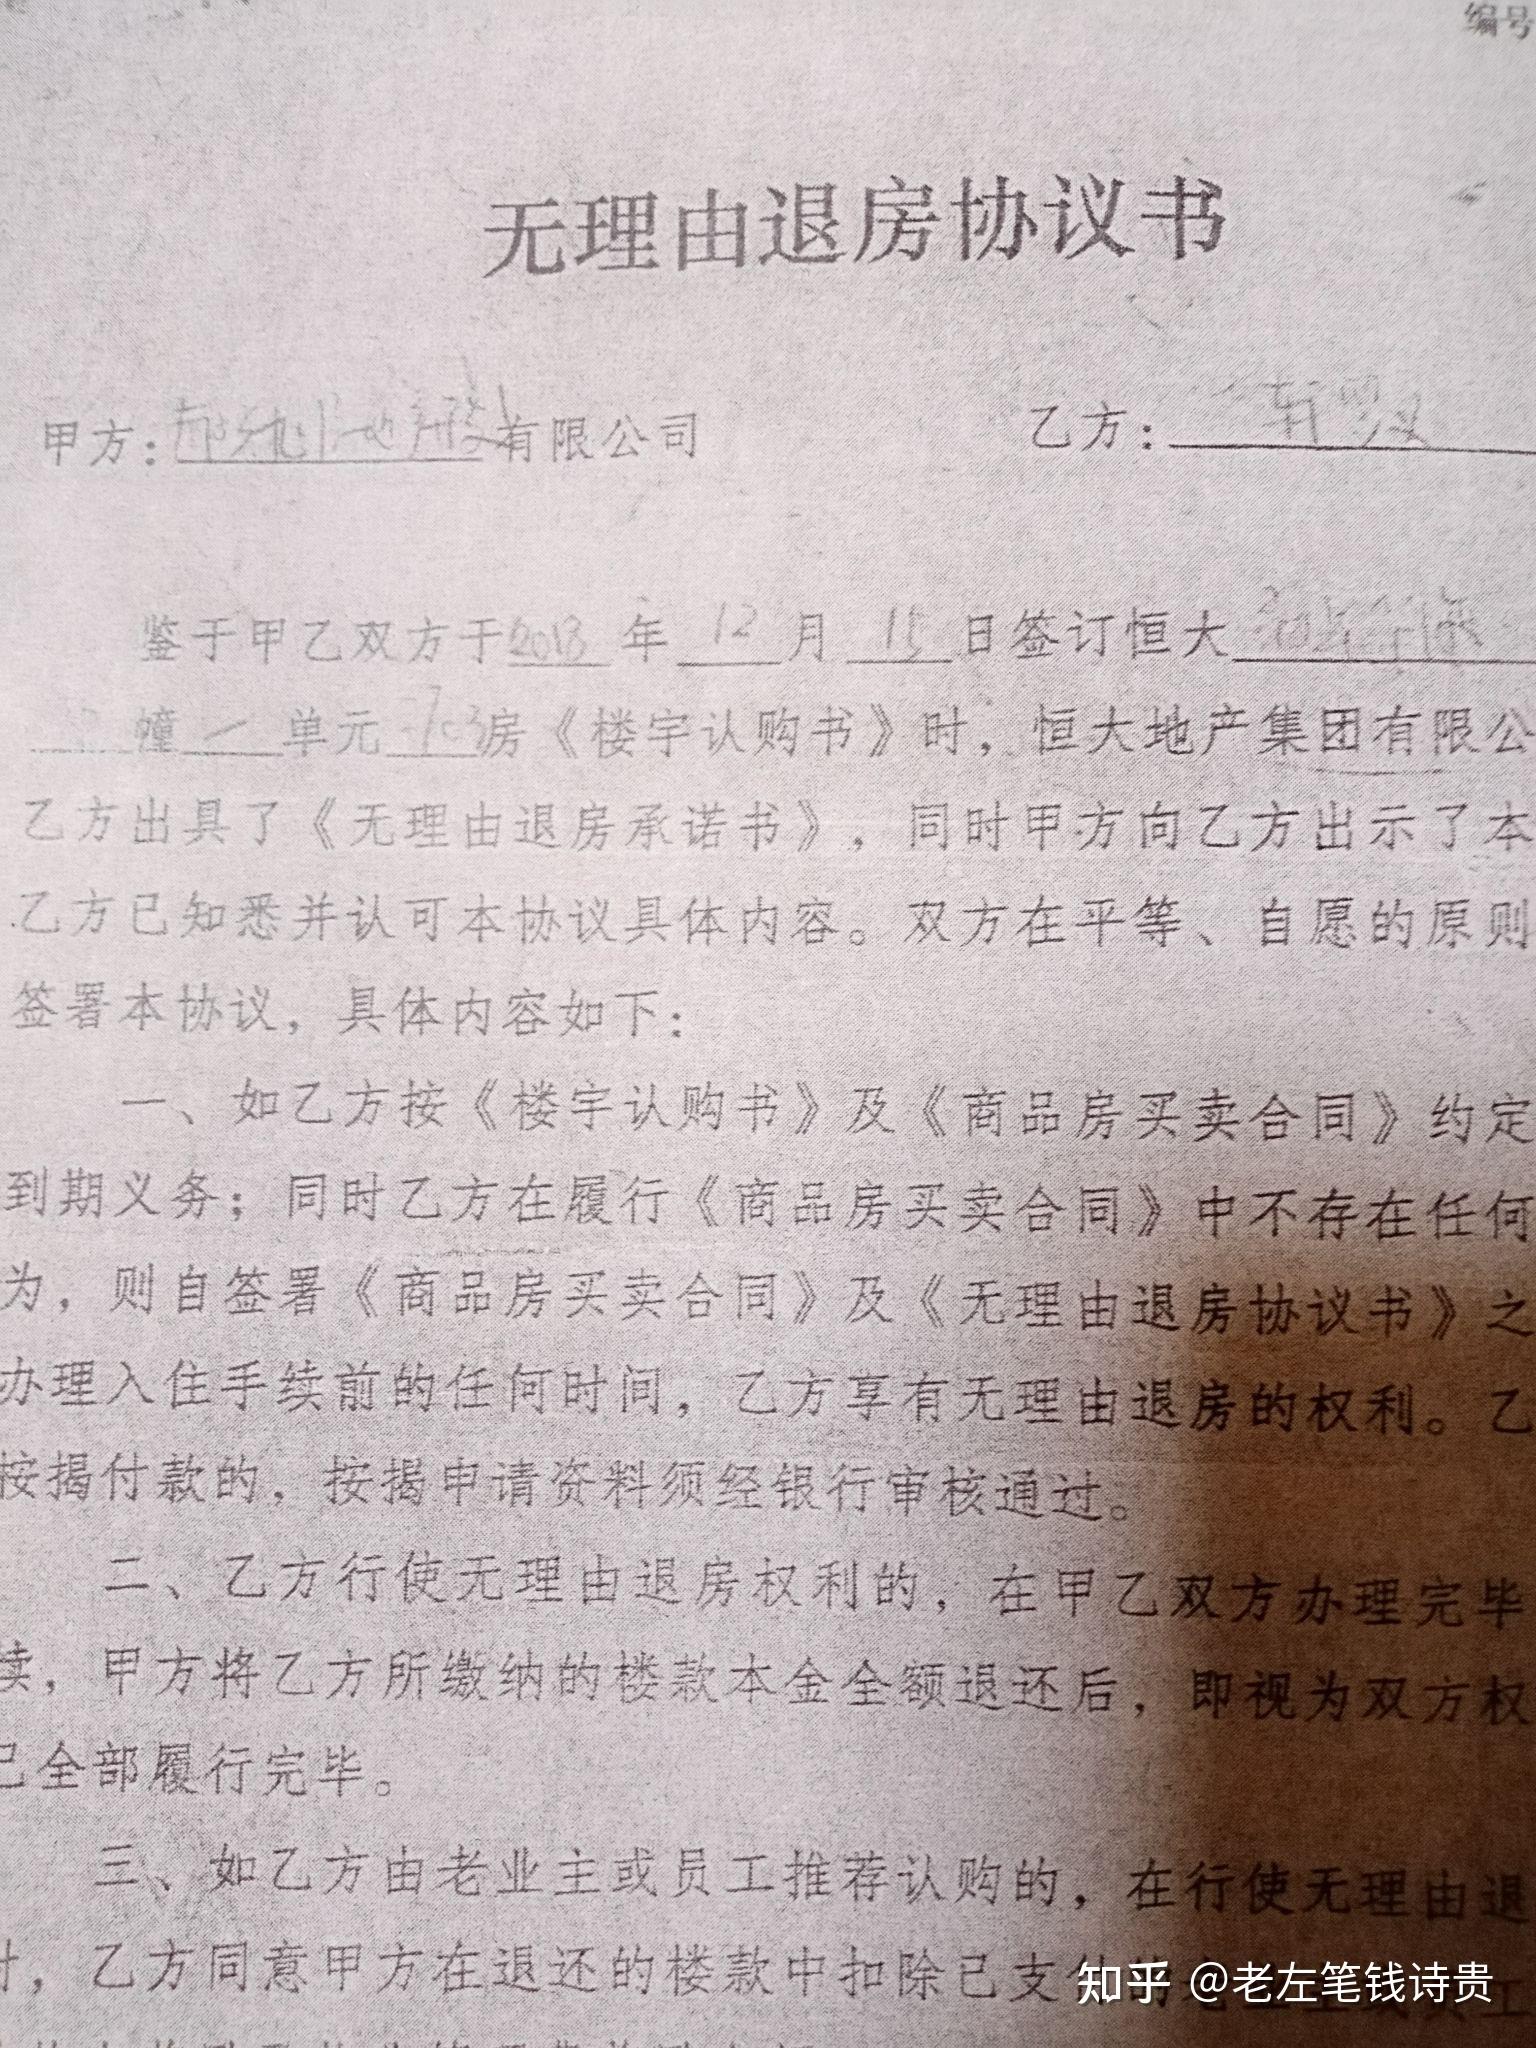 编号
无理由退房协议书
甲方: 有限公司 乙方:
鉴于甲乙双方于2018年12月15日签订恒大
幢一单元703房《楼宇认购书》时，恒大地产集团有限公
乙方出具了《无理由退房承诺书》，同时甲方向乙方出示了本
乙方已知悉并认可本协议具体内容。双方在平等、自愿的原则
签署本协议，具体内容如下：
一、如乙方按《楼宇认购书》及《商品房买卖合同》约定
到期义务；同时乙方在履行《商品房买卖合同》中不存在任何
为，则自签署《商品房买卖合同》及《无理由退房协议书》之
办理入住手续前的任何时间，乙方享有无理由退房的权利。乙
按揭付款的，按揭申请资料须经银行审核通过。
二、乙方行使无理由退房权利的，在甲乙双方办理完毕
续，甲方将乙方所缴纳的楼款本金全额退还后，即视为双方权
已全部履行完毕。
三、如乙方由老业主或员工推荐认购的，在行使无理由退
时，乙方同意甲方在退还的楼款中扣除已支付
知乎 @老左笔钱诗贵